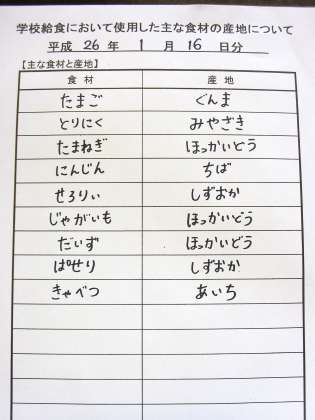 学校給食において使用した主な食材の産地について
平成 26 年 1 月 16 日分
【主な食材と産地】
食材 産地
たまご ぐんま
とりにく みやざき
たまねぎ ほっかいどう
にんじん ちば
せろりぃ しずおか
じゃがいも ほっかいどう
だいず ほっかいどう
ぱせり しずおか
きゃべつ あいち